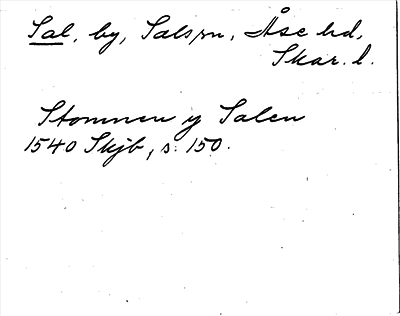 Sal, by, Sals sn, Åse hd,
Skar. l.
Stommen y Salen
1540 Skjb, s. 150.